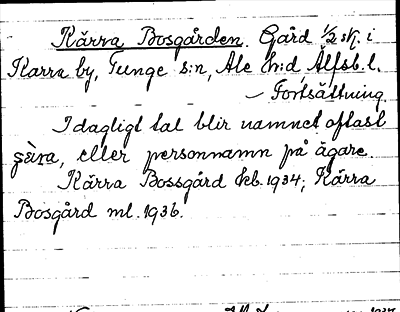 Kärra Bosgården. Gård 1/2 sk. i
Karra by, Tunge s:n, Ale h:d, Älfsb. l.
– Fortsättning.
I dagligt tal blir namnet oftast
gàra, eller personnamn på ägare.
Kärra Bossgård kb. 1934; Kärra
Bosgård ml. 1936.